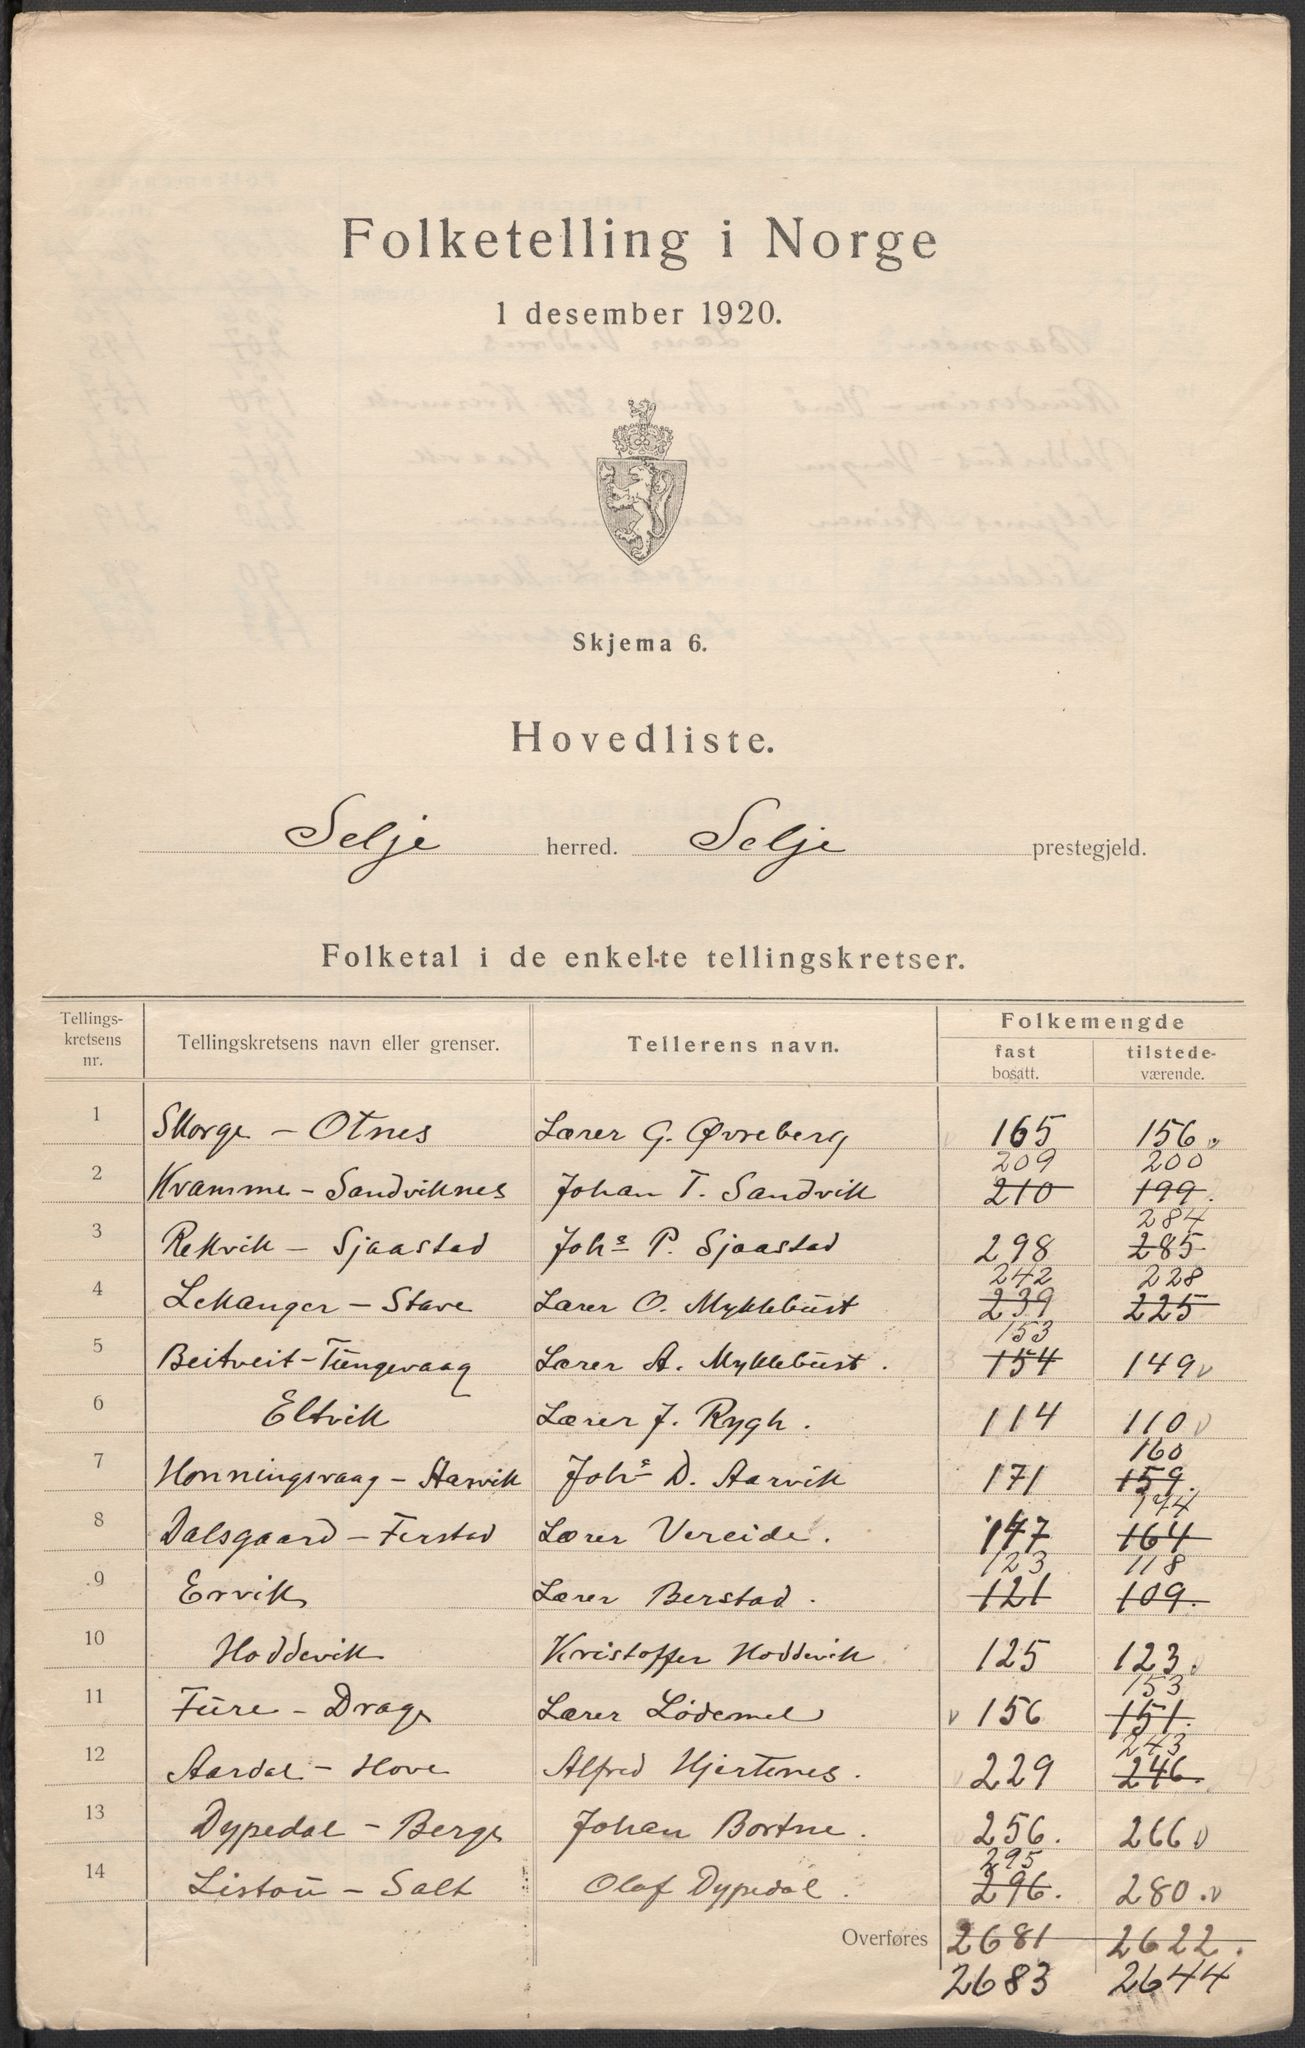 Folketelling i Norge
1 desember 1920.
Skjema 6.
Hovedliste.
Selje herred. Selje prestegjeld.
Folketal i de enkelte tellingskretser.
Tellings-kretsens nr. Tellingskretsens navn eller grenser. Tellerens navn. Folkemengde
fast bosatt. tilstede-værende.
1 Skorge - Otnes Lærer G. Øvreberg 165 156.
209 200
2 Kvamme - Sandviknes Johan T. Sandvik 210 199.
284
3 Rekvik - Sjaastad Johs P. Sjaastad 298 285
242 228
4 Lekanger - Stave Lærer O. Myklebust 239 225
153
5 Beitveit - Tungevaag Lærer A. Myklebust. 154 149
6 Eltvik Lærer J. Rygh. 114 110
160
7 Honningsvaag - Aarvik Johs D. Aarvik 171 159.
144
8 Dalsgaard - Ferstad Lærer Vereide. 147 164
123 118
9 Ervik Lærer Berstad. 121 109.
10 Hoddevik Kristoffer Hoddevik 125 123
153
11 Fure - Drage Lærer Lødemel 156 151.
243
12 Aardal - Hove Alfred Hjertenes. 229 246.
13 Dypedal - Berge Johan Bortne. 256. 266
295
14 Listou - Salt Olaf Dypedal. 296. 280.
Overføres 2681 2622.
2683 2644